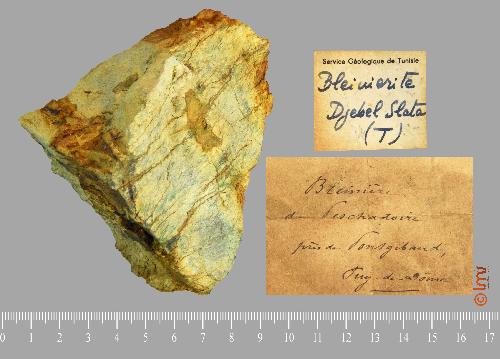 Service Géologique de Tunisie
Bleinierite
Djebel Slata
(T)
Bleinière
de Peschadoire
près de Pontgibaud,
Puy-de-Dôme
0 1 2 3 4 5 6 7 8 9 10 11 12 13 14 15 16 17